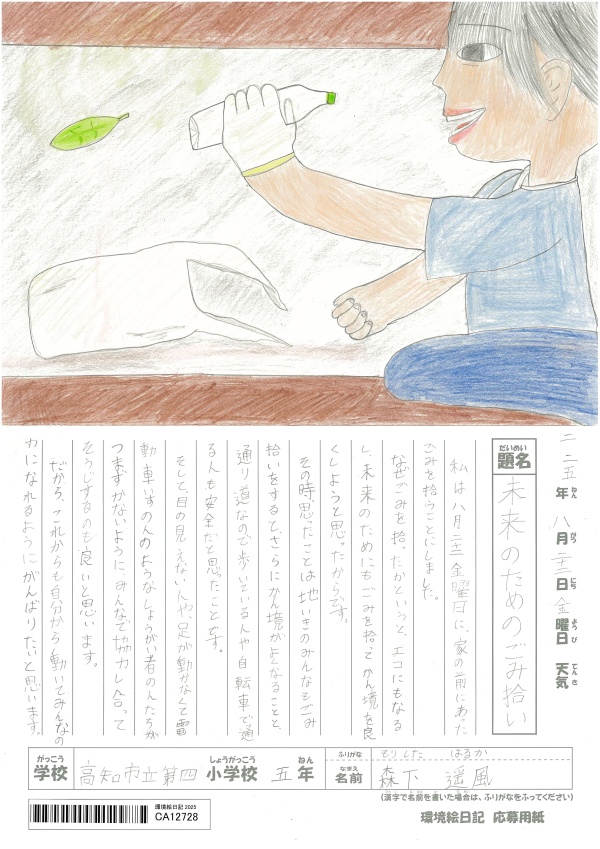 二 二五年 八月二十二日 金曜日 天気
ねん がつ にち ようび てんき
だいめい
題名 未来のためのごみ拾い
私は八月二十二 金曜日に、家の前にあった
ごみを拾うことにしました。
なぜごみを拾ったかというと、エコにもなる
し、未来のためにもごみを拾ってかん境を良
くしようと思ったからです。
その時、思ったことは地いきのみんなもごみ
拾いをすると、さらにかん境がよくなることと、
通り道なので歩いている人や自転車で通
る人も安全だと思ったことです。
そして、目の見えない人や、足が動かなくて電
動車いすの人のようなしょうがい者の人たちが
つまずかないようにみんなで協力し合って
そうじするのも良いと思います。
だから、これからも自分から動いてみんなの
力になれるようにがんばりたいと思います。
がっこう しょうがっこう ねん
学校 高知市立第四小学校 五年
ふりがな もりした はるか
なまえ
名前 森下 遥風
(漢字で名前を書いた場合は、ふりがなをふってください)
環境絵日記 2025
CA12728
環境絵日記 応募用紙